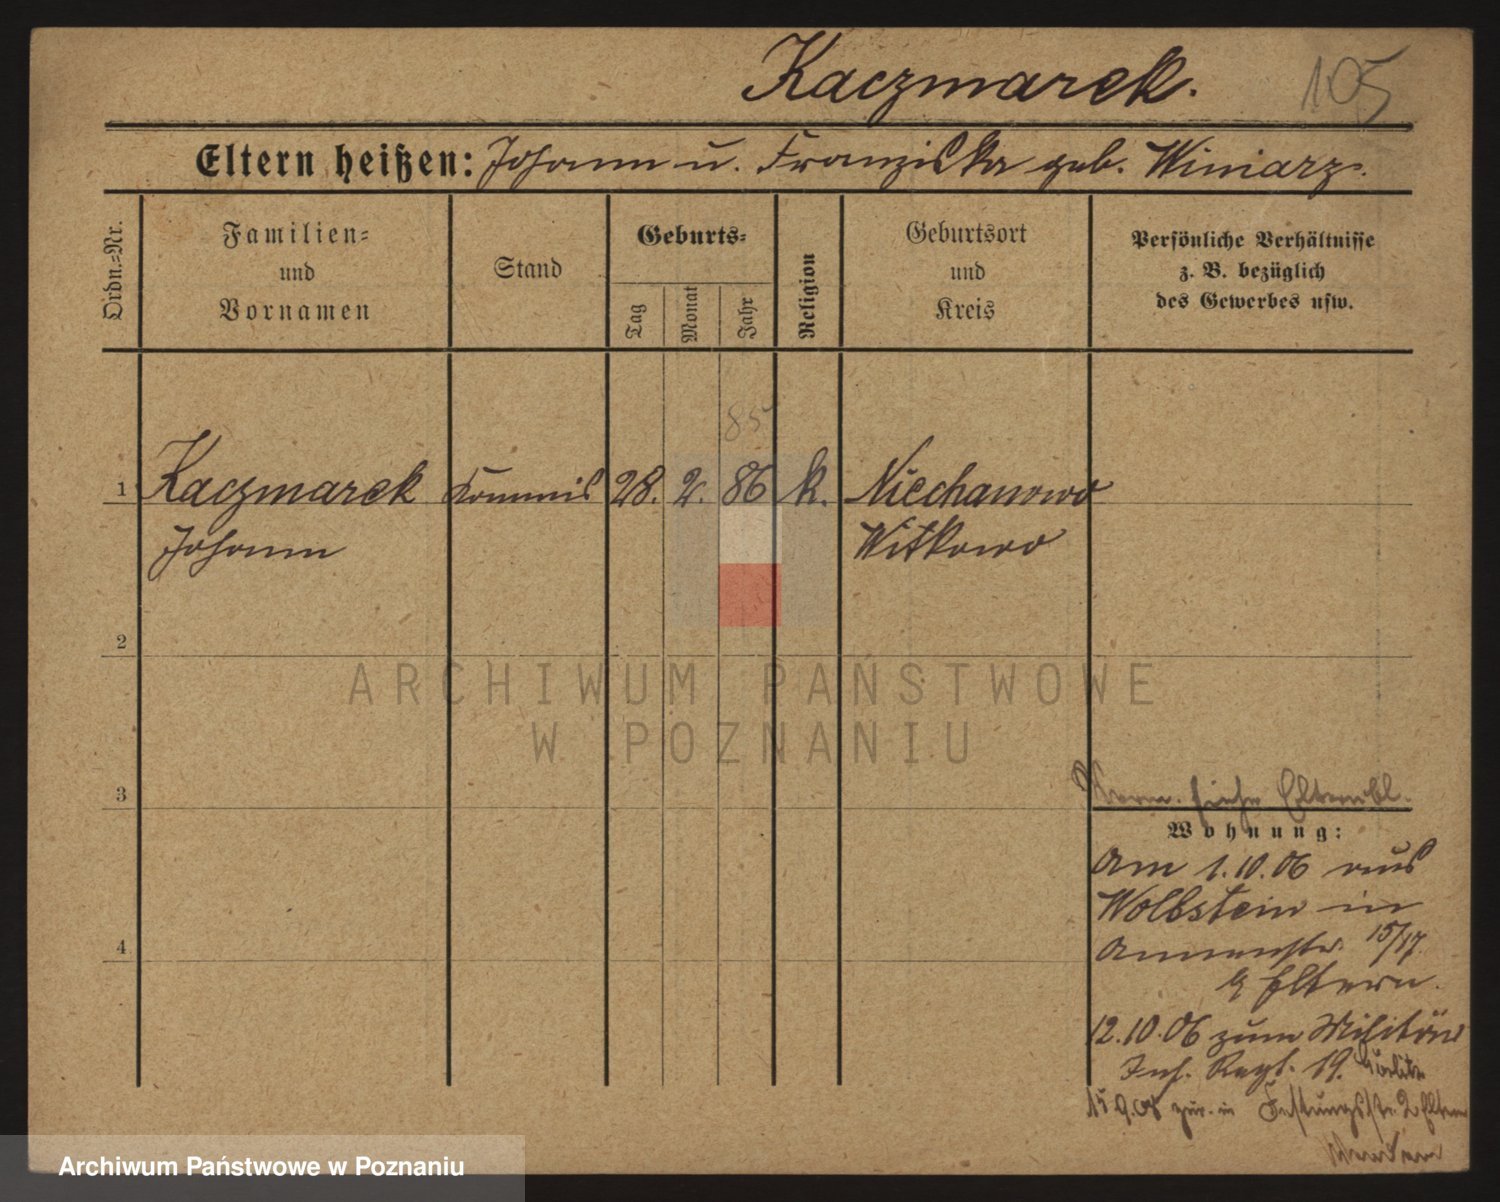 Kaczmarek. 105
Eltern heißen: Johann u. Franziska geb. Winiarz.
Ordn.-Nr.
Familien-
und
Vornamen
Stand
Geburts-
Tag
Monat
Jahr
Religion
Geburtsort
und
Kreis
Persönliche Verhältnisse
z. B. bezüglich
des Gewerbes usw.
85
1 Kaczmarek Kommis 28. 2. 86 k. Niechanowo
Johann Witkowo
2
ARCHIWUM PAŃSTWOWE
W POZNANIU
3
siehe Elternbl.
Wohnung:
Am 1.10.06 aus
Wollstein in
15/17
Eltern.
12.10.06 zum Militär
Inf. Regt. 19. Görlitz
zur. in Festungsstr. 2 Eltern
4
Archiwum Państwowe w Poznaniu